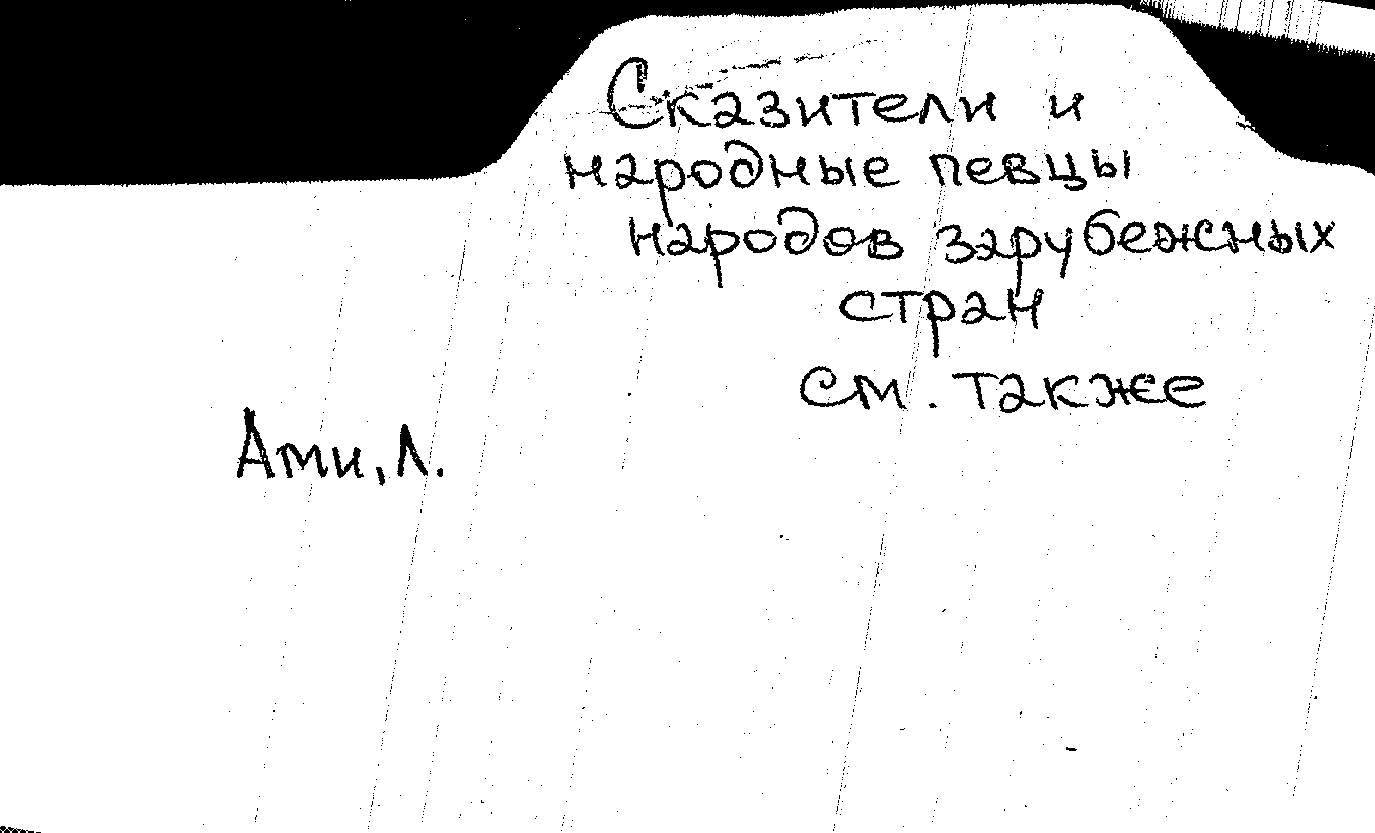 Сказители и
народные певцы
народов зарубежных
стран
см. также
Ами, Л.